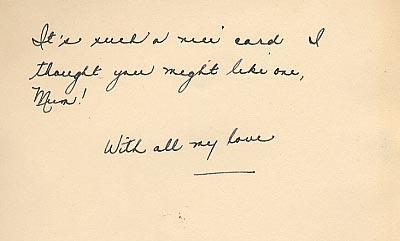 It's such a nice card I
thought you might like one,
Mum!
With all my love